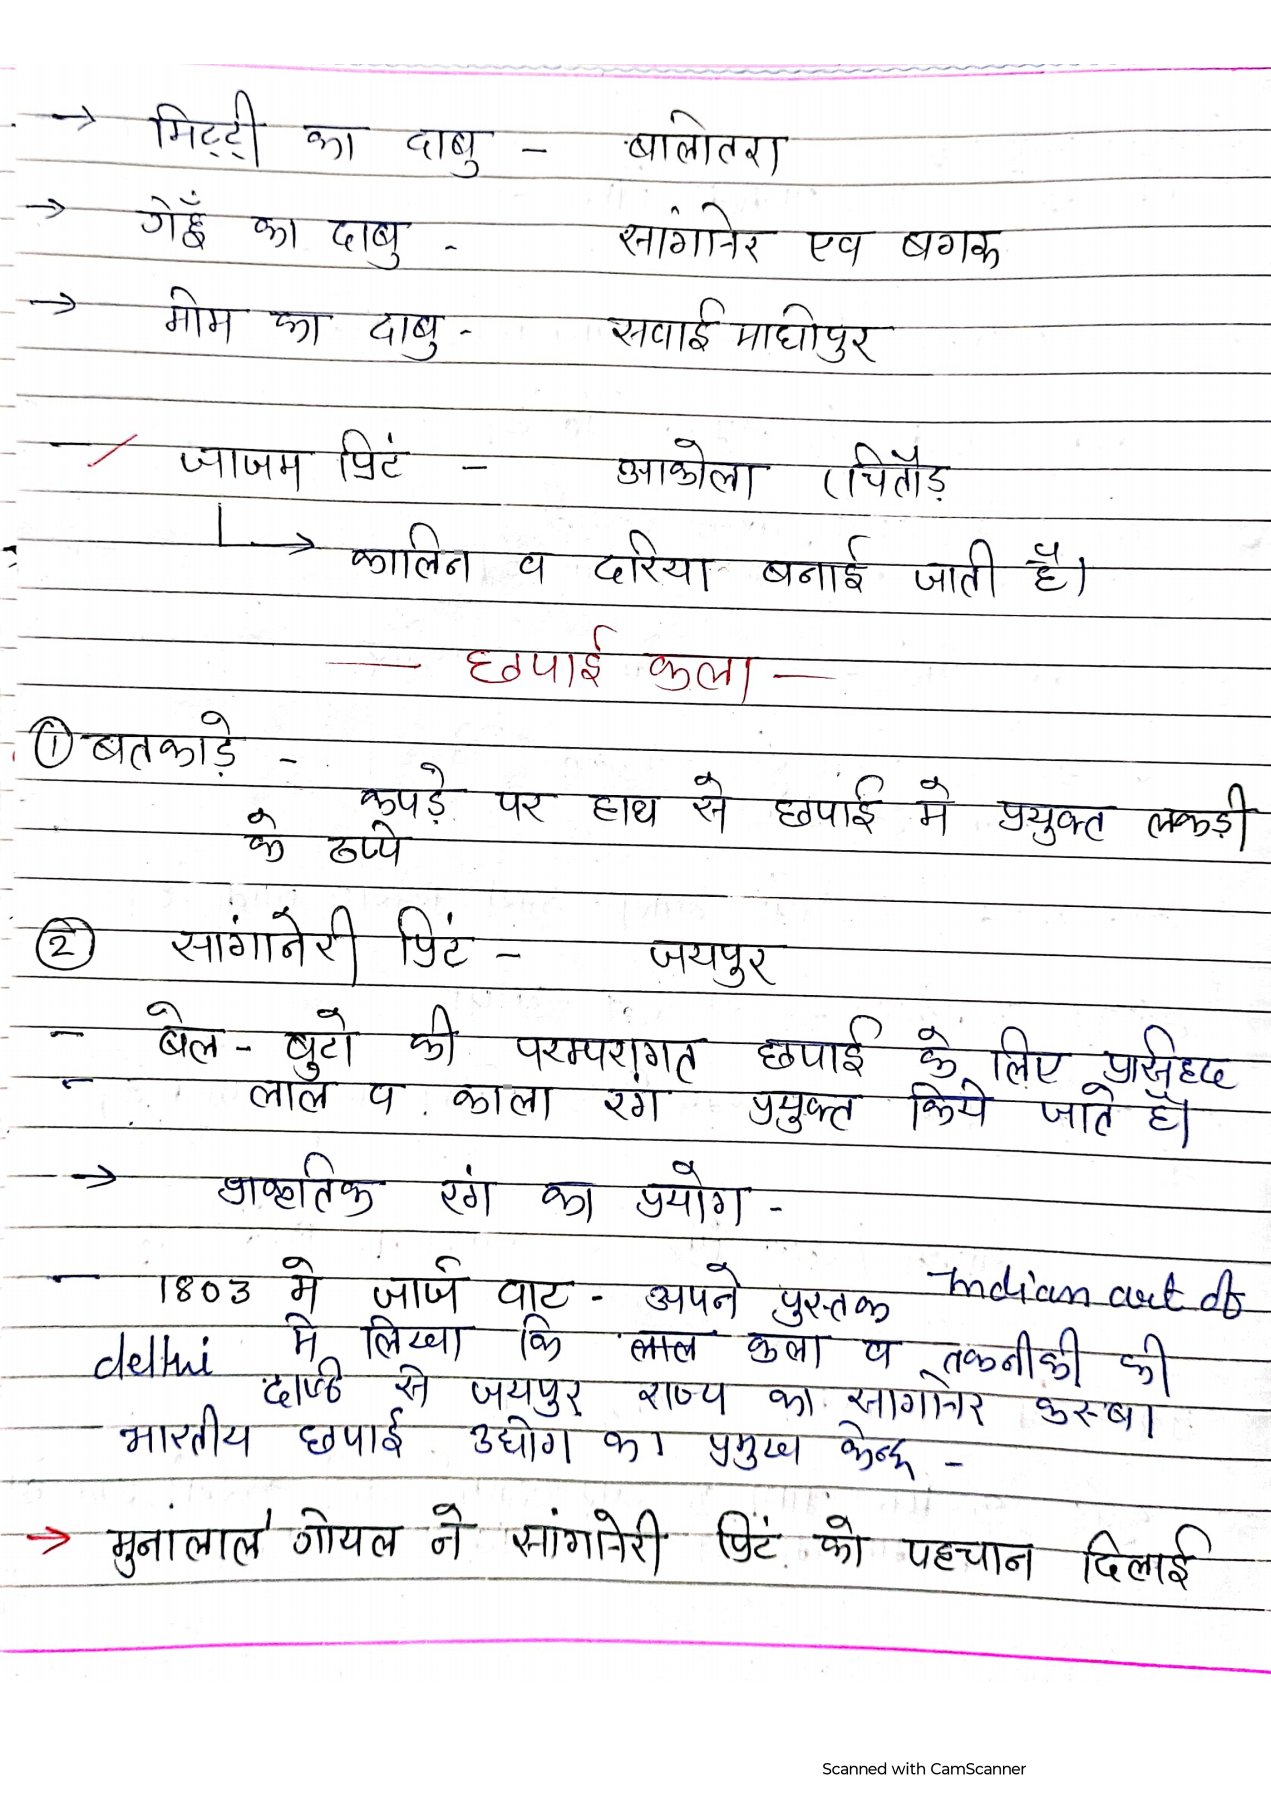 → मिट्टी का दाबु - बालोतरा
→ गेहूँ का दाबु - सांगानेर एव बगरू
→ मोम का दाबु - सवाई माधोपुर
जाजम प्रिटं - आकोला (चितौड़
→ कालिन व दरिया बनाई जाती है।
— छपाई कला —
① बतकाड़े -
कपड़े पर हाथ से छपाई मे प्रयुक्त लकड़ी
के ठप्पे
② सांगानेरी प्रिटं - जयपुर
- बेल - बुटो की परम्परागत छपाई के लिए प्रसिद्ध
- लाल व काला रंग प्रयुक्त किये जाते है।
→ प्राकृतिक रंग का प्रयोग -
- 1803 मे जार्ज वाट - अपने पुस्तक Indian art of
delhi मे लिखा कि लाल कला व तकनीकी की
दृष्टि से जयपुर राज्य का सांगानेर कस्बा
भारतीय छपाई उद्योग का प्रमुख केन्द्र -
→ मुनांलाल गोयल ने सांगानेरी प्रिटं को पहचान दिलाई
Scanned with CamScanner